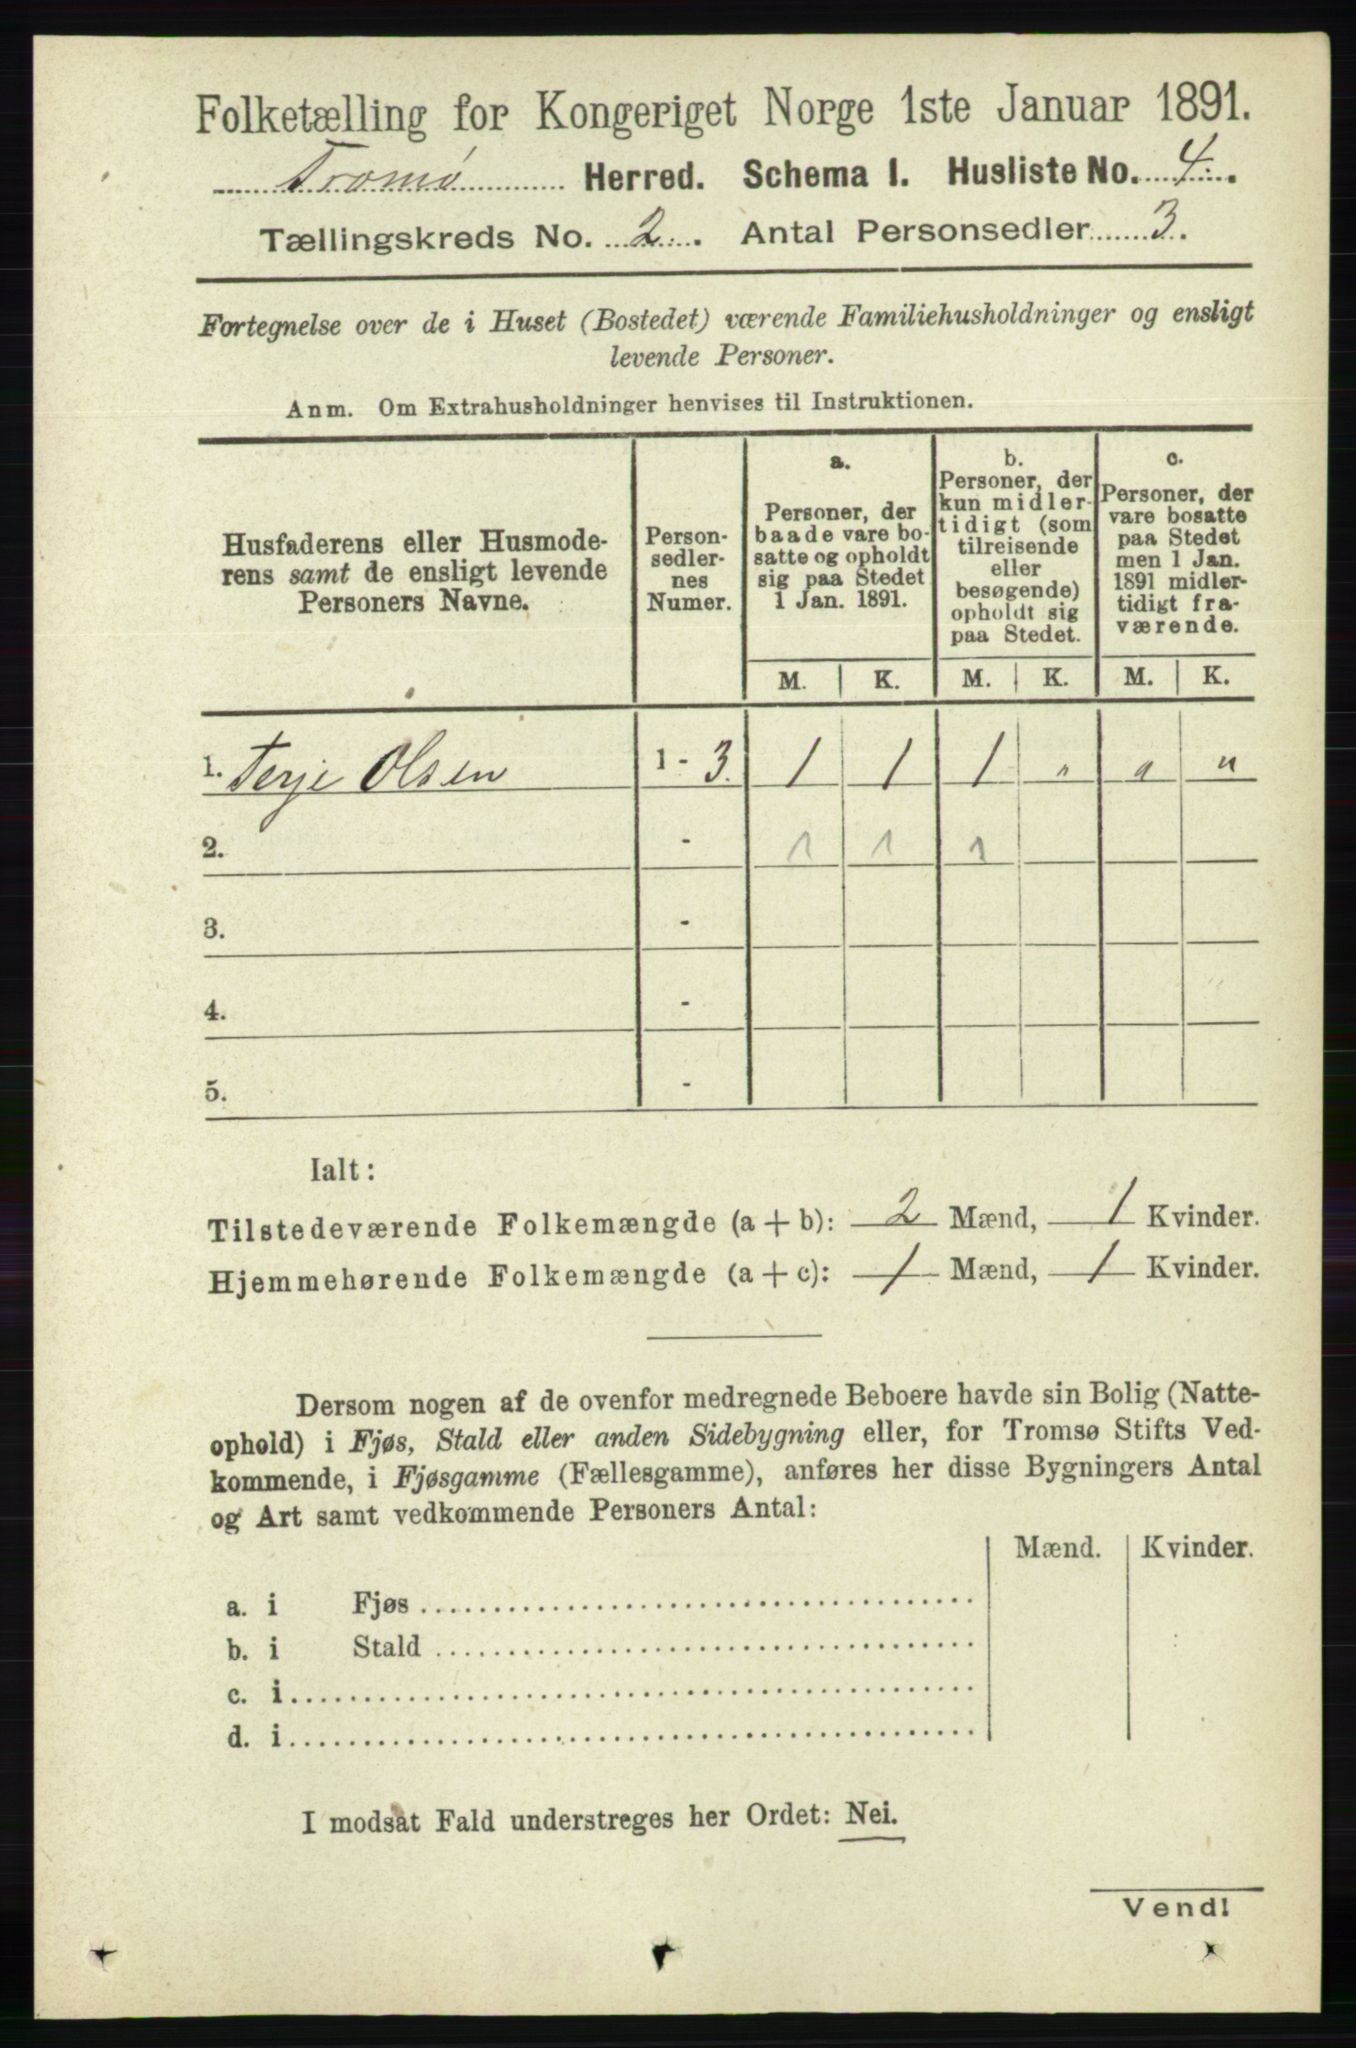 Folketælling for Kongeriget Norge 1ste Januar 1891.
Tromø Herred. Schema I. Husliste No. 4.
Tællingskreds No. 2. Antal Personsedler 3.
Fortegnelse over de i Huset (Bostedet) værende Familiehusholdninger og ensligt
levende Personer.
Anm. Om Extrahusholdninger henvises til Instruktionen.
Husfaderens eller Husmode-
rens samt de ensligt levende
Personers Navne.
Person-
sedler-
nes
Numer.
a.
Personer, der
baade vare bo-
satte og opholdt
sig paa Stedet
1 Jan. 1891.
b.
Personer, der
kun midler-
tidigt (som
tilreisende
eller
besøgende)
opholdt sig
paa Stedet.
c.
Personer, der
vare bosatte
paa Stedet
men 1 Jan.
1891 midler-
tidigt fra-
værende.
M. K. M. K. M. K.
1. Terje Olsen 1 - 3. 1 1 1 " " "
2. - 1 1 1
3. -
4. -
5. -
Ialt:
Tilstedeværende Folkemængde (a + b): 2 Mænd, 1 Kvinder.
Hjemmehørende Folkemængde (a + c): 1 Mænd, 1 Kvinder.
Dersom nogen af de ovenfor medregnede Beboere havde sin Bolig (Natte-
ophold) i Fjøs, Stald eller anden Sidebygning eller, for Tromsø Stifts Ved-
kommende, i Fjøsgamme (Fællesgamme), anføres her disse Bygningers Antal
og Art samt vedkommende Personers Antal:
Mænd. Kvinder.
a. i Fjøs
b. i Stald
c. i
d. i
I modsat Fald understreges her Ordet: Nei.
Vend!